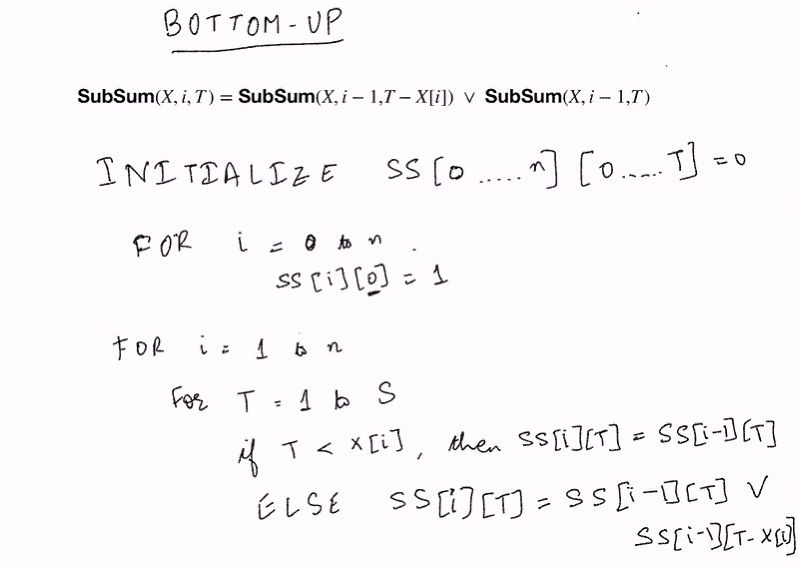 BOTTOM-UP
SubSum(X, i, T) = SubSum(X, i − 1,T − X[i]) ∨ SubSum(X, i − 1,T)
INITIALIZE SS[0.....n] [0.....T] = 0
FOR i = 0 to n.
SS[i][0] = 1
FOR i = 1 to n
For T = 1 to S
if T < X[i], then SS[i][T] = SS[i-1][T]
ELSE SS[i][T] = SS[i-1][T] ∨
SS[i-1][T-X[i]]